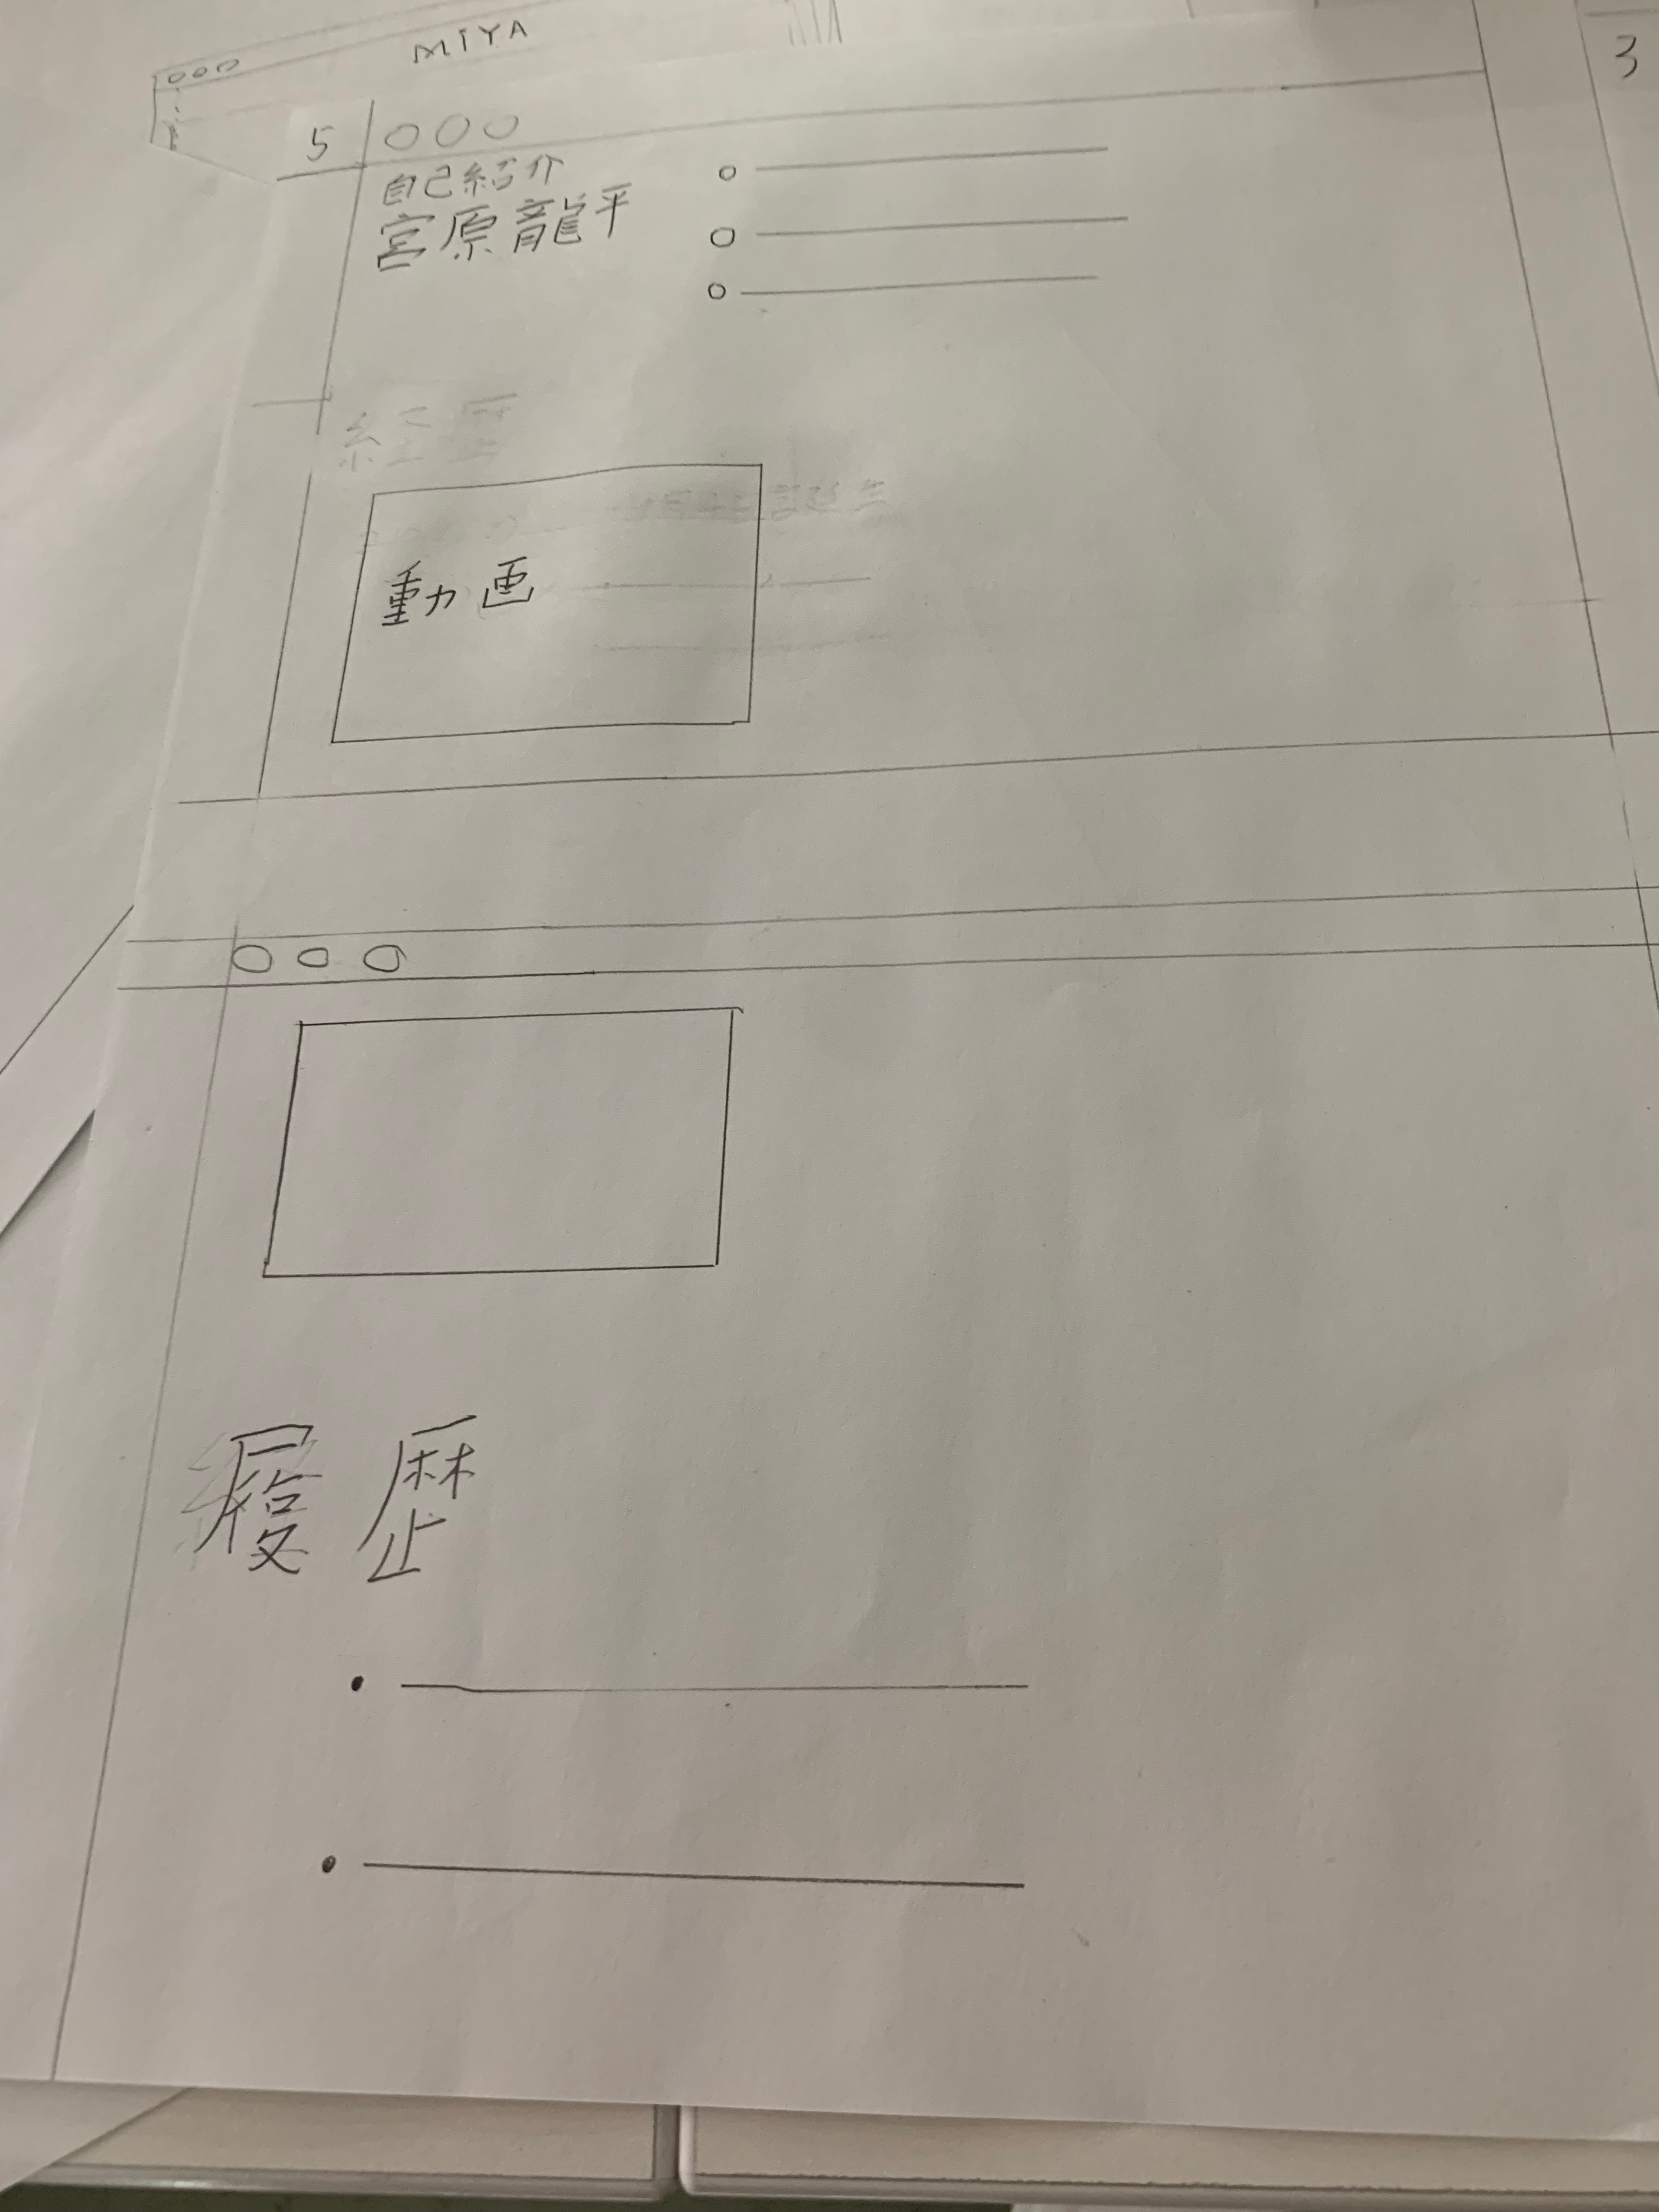 MIYA
3
5
自己紹介
宮原龍平
経歴
動画
履歴